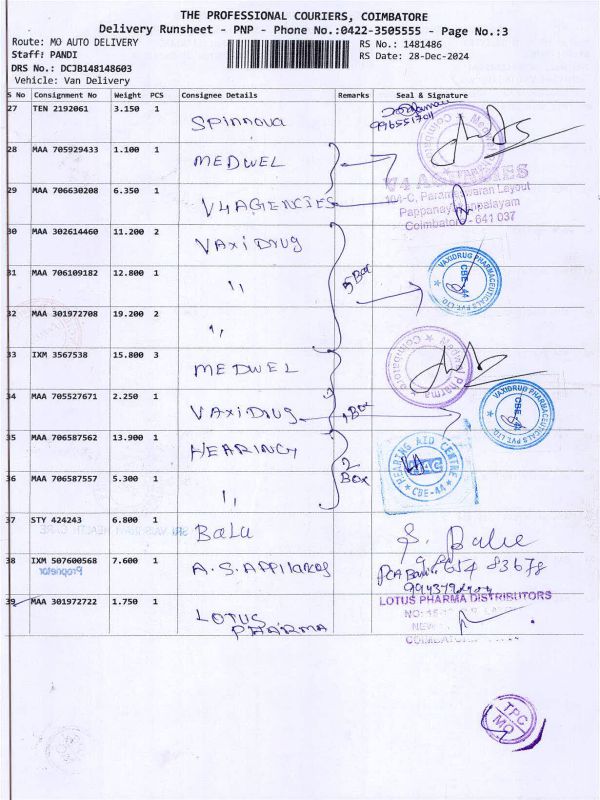 THE PROFESSIONAL COURIERS, COIMBATORE
Delivery Runsheet - PNP - Phone No.:0422-3505555 - Page No.:3
Route: MO AUTO DELIVERY
RS No.: 1481486
Staff: PANDI
RS Date: 28-Dec-2024
DRS No.: DCJB148148603
Vehicle: Van Delivery
S No Consignment No Weight PCS Consignee Details Remarks Seal & Signature
27 TEN 2192061 3.150 1 Spinnova
28 MAA 705929433 1.100 1 MEDWEL
29 MAA 706630208 6.350 1 V4AGENCIES
V4 AGENCIES
104-C, Parameswaran Layout
Pappanayakenpalayam
Coimbatore - 641 037
30 MAA 302614460 11.200 2 VAXiDRUG
31 MAA 706109182 12.800 1 " 5 Box
VAXIDRUG PHARMACEUTICALS PVT. LTD. CBE-44
32 MAA 301972708 19.200 2 "
33 IXM 3567538 15.800 3 MEDWEL
Medwel Pharma Coimbatore
34 MAA 705527671 2.250 1 VAXiDRUG 1 Box
VAXIDRUG PHARMACEUTICALS PVT. LTD. CBE-44
35 MAA 706587562 13.900 1 HEARING
HEARING AID CENTRE HAC CBE-44
36 MAA 706587557 5.300 1 " 2 Box
37 STY 424243 6.800 1 BaLu
38 IXM 507600568 7.600 1 A.S.
Proprietor
39 MAA 301972722 1.750 1 LOTUS PHARMA
LOTUS PHARMA DISTRIBUTORS
TPC
MO